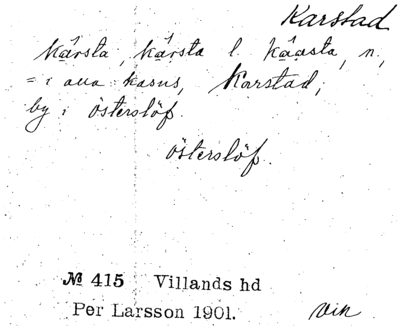 Karstad
kårsta, kärsta l. kåasta, n,
= i alla kasus, Karstad,
by i österslöf.
österslöf.
№ 415 Villands hd
Per Larsson 1901. vin